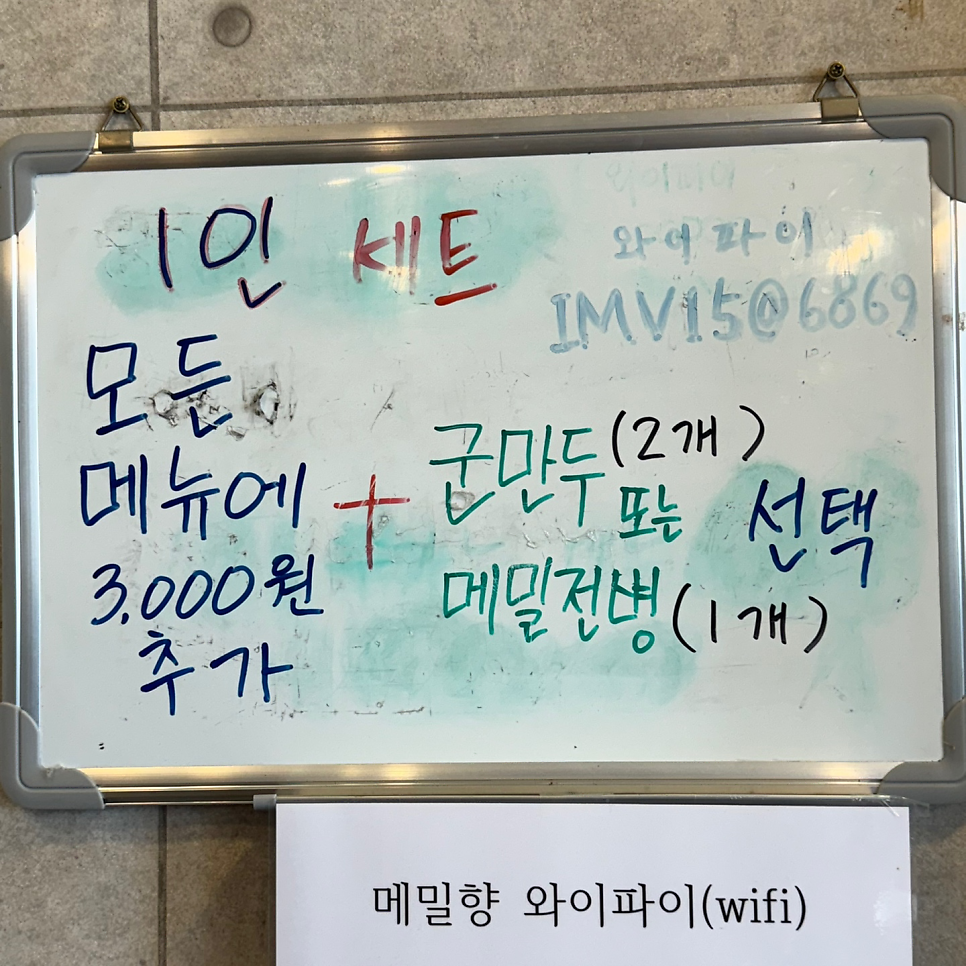 1인 세트
와이파이
와이파이
IMV15@6869
모든
메뉴에
3,000원
추가
+
군만두(2개)
또는
메밀전병(1개)
선택
메밀향 와이파이(wifi)